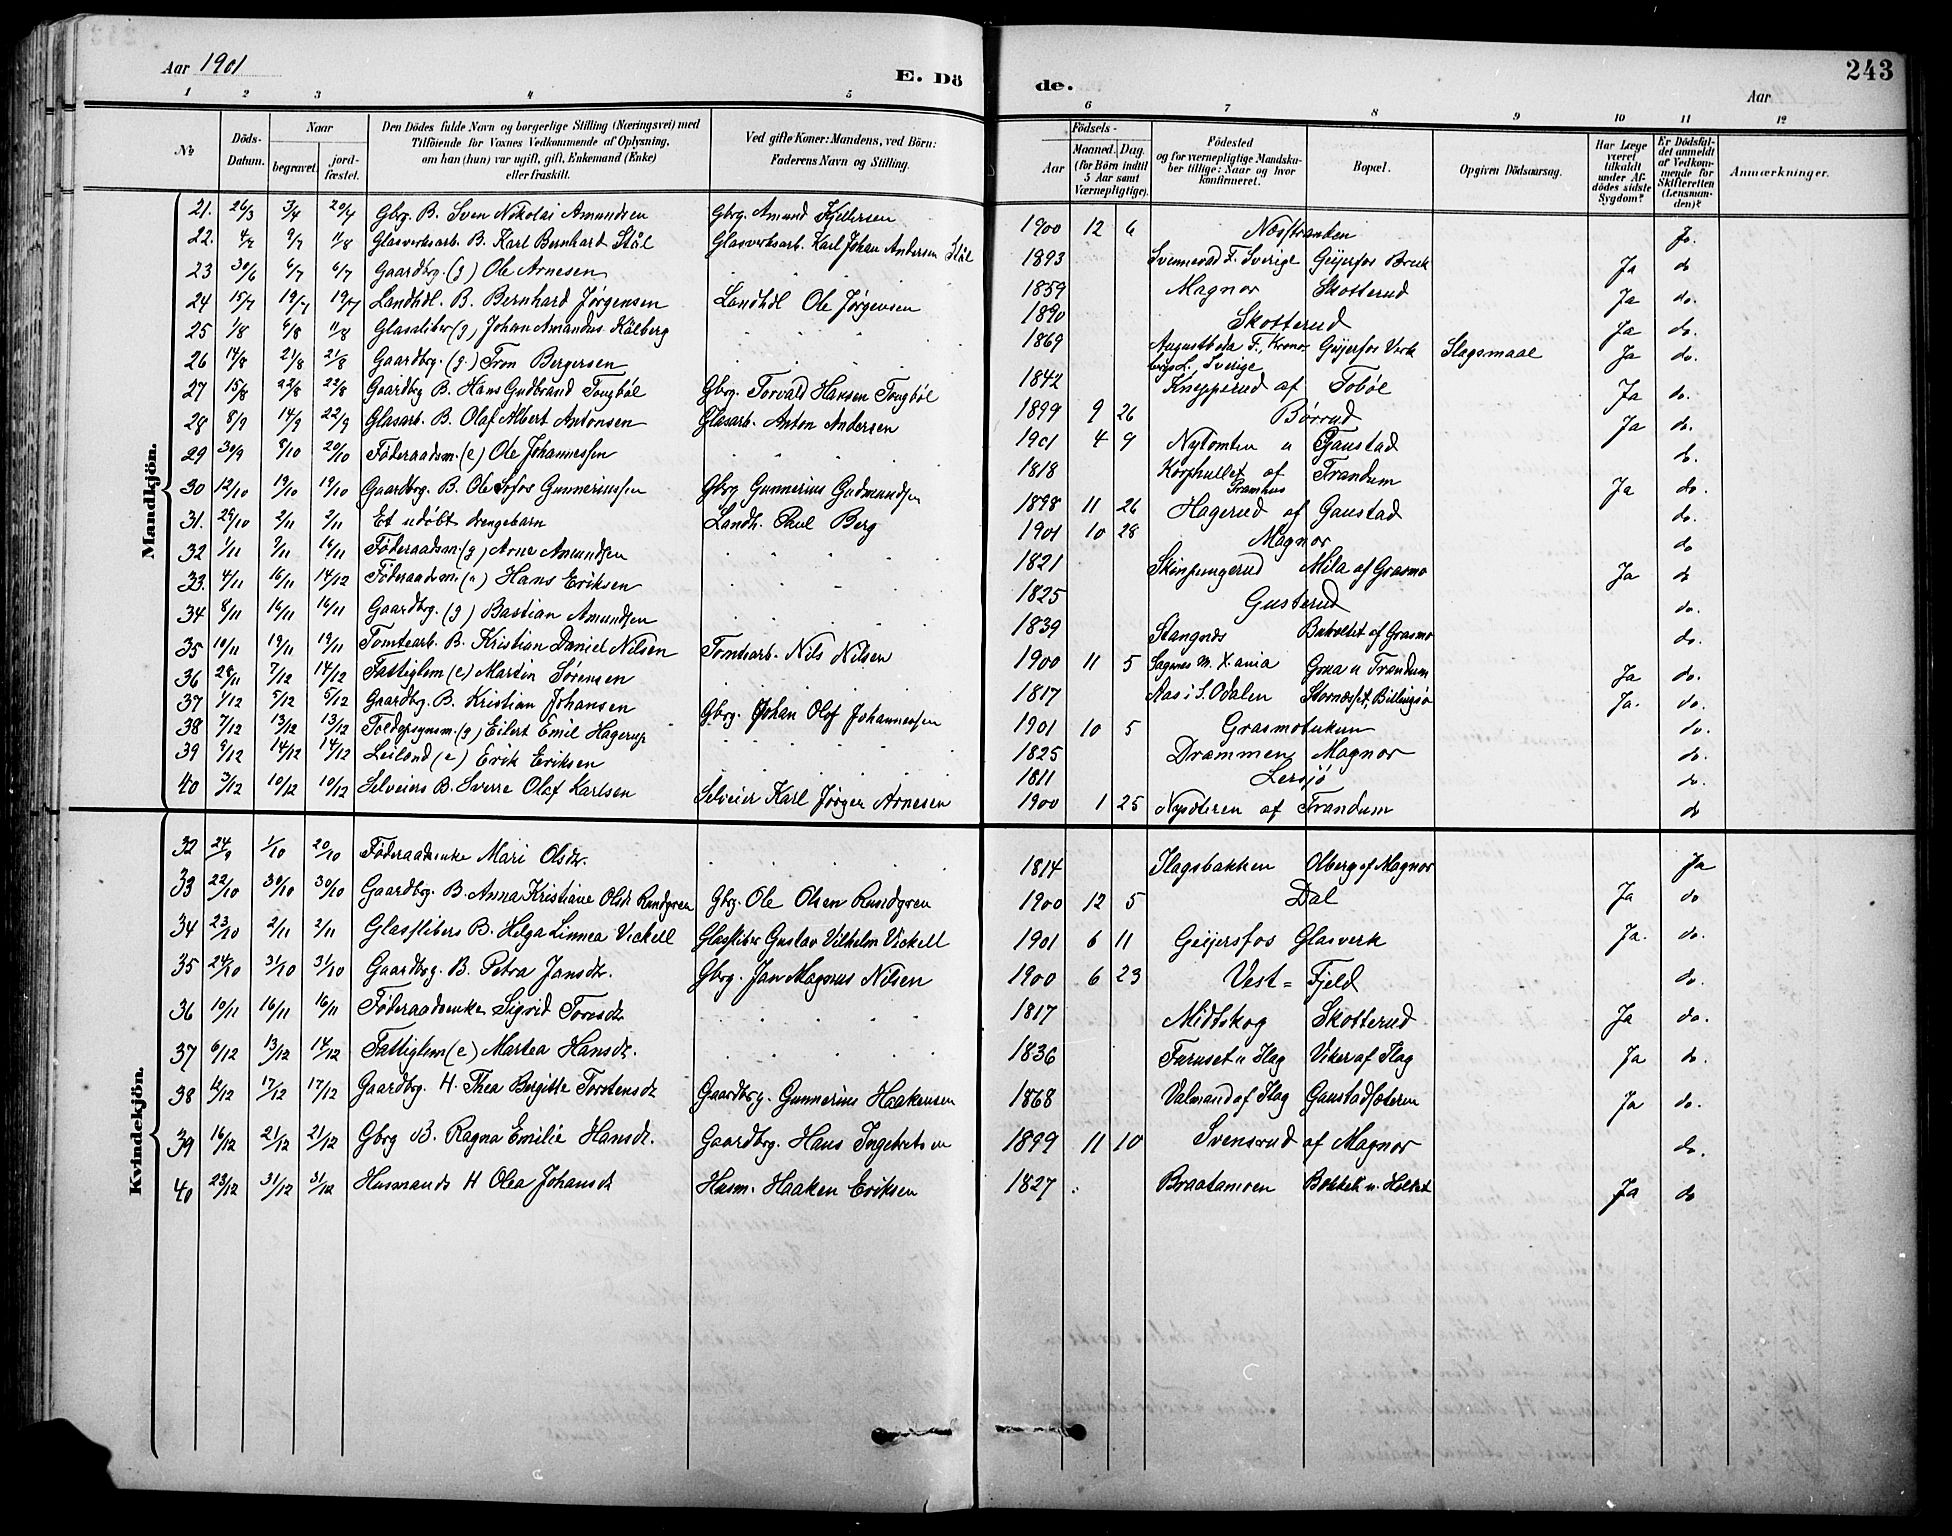 Aar 1901
E. Dö
de.
243
Aar
1 2 3 4 5 6 7 8 9 10 11 12
No
Döds-Datum.
Naar
begravet.
jord-fæstet.
Den Dödes fulde Navn og borgerlige Stilling (Næringsvei) med
Tilföiende for Voxnes Vedkommende af Oplysning,
om han (hun) var ugift, gift, Enkemand (Enke)
eller fraskilt.
Ved gifte Koner: Mandens, ved Börn:
Faderens Navn og Stilling.
Födsels-
Aar
Maaned. Dag.
(for Börn indtil
5 Aar samt
Værnepligtige).
Födested
og for værnepligtige Mandska-
ber tillige: Naar og hvor
konfirmeret.
Bopæl.
Opgiven Dödsaarsag.
Har Læge
været
tilkaldt
under Af-
dödes sidste
Sygdom?
Er Dödsfal-
det anmeldt
af Vedkom-
mende for
Skifteretten
(Lensman-
den)?
Anmærkninger.
Mandkjön.
21. 26/3 3/4 20/4 Gbrg. B. Sven Nikolai Amundsen Gbrg. Amund Kjellersen 1900 12 6 Næsstranden Ja.
22. 4/7 9/7 11/8 Glasverksarb. B. Karl Bernhard Stål Glasverksarb. Karl Johan Andersen Stål 1893 Svennevad F. Sverige Geijerfos Bruk Ja do
23 30/6 6/7 6/7 Gaardbrg. (g) Ole Arnesen 1859 Magnor Skotterud Ja do.
24 15/7 19/7 19/7 Landhdl. B. Bernhard Jørgensen Landhdl Ole Jørgensen 1890 Skotterud Ja do.
25 1/8 6/8 11/8 Glassliber (g) Johan Amandus Kålberg 1869 Augustboda F., Kronobergs L. Sverige Geijerfos Verk Slagsmaal Ja do.
26 14/8 21/8 21/8 Gaardbrg. (g.) Tron Bergersen 1842 Knepperud af Tobøl Ja do.
27 15/8 22/8 22/8 Gaardbrg B. Hans Gudbrand Tougbøl Gbrg. Torvald Hansen Tougbøl 1899 9 26 Børrud Ja do.
28 8/9 14/9 22/9 Glasarb. B. Olaf Albert Antonsen Glasarb. Anton Andersen 1901 4 9 Nytomten u Gaustad do.
29 30/9 8/10 20/10 Føderaadsm. (e) Ole Johannessen 1818 Korphullet af Tramhus Trandum Ja do.
30 12/10 19/10 19/10 Gaardbrg. B. Ole Sofos Gunneriussen Gbrg Gunnerius Gudmundsen 1898 11 26 Hagerud af Gaustad do.
31. 29/10 2/11 2/11 Et udøbt drengebarn Landh. Paul Berg 1901 10 28 Magnor do
32 1/11 9/11 16/11 Føderaadsm. (g) Arne Amundsen 1821 Skinpungerud Mila af Grasmo Ja do
33. 4/11 16/11 14/12 Føderaadsm. (e) Hans Eriksen 1825 Gusterud do.
34 8/11 16/11 16/11 Gaardbrg. (g) Bastian Amundsen 1839 Stangnes Bakvoltet af Grasmo do.
35 10/11 19/11 19/11 Tomtearb. B. Kristian Daniel Nilsen Tomtearb. Nils Nilsen 1900 11 5 Sagenes m. X.ania Graa u Trandum Ja do.
36 28/11 7/12 14/12 Fattiglem (e) Martin Sørensen 1817 Aas i S. Odalen Stornæset, Billingsø Ja. do.
37 1/12 5/12 5/12 Gaardbrg. B. Kristian Johansen Gbrg. Johan Olof Johannessen 1901 10 5 Grasmobekun do.
38 7/12 13/12 13/12 Toldopsynsm. (g) Eilert Emil Hagerup 1825 Drammen Magnor do.
39 9/12 14/12 14/12 Leilænd (e) Erik Eriksen 1811 Lersjø do.
40 3/12 10/12 10/12 Selveiers B. Sverre Olaf Karlsen Selveier Karl Jørgen Arnesen 1900 1 25 Nysæteren af Trandum do
Kvindekjön.
32 24/9 1/10 20/10 Føderaadsenke Mari Olsdr. 1814 Slagsbakken Olberg af Magnor Ja
33 22/10 30/10 30/10 Gaardbrg. B. Anna Kristiane Olsdr Rundgren Gbrg. Ole Olsen Rundgren 1900 12 5 Dal Ja do
34 23/10 2/11 2/11 Glassslibers B. Helga Linnea Vickell Glassliber Gustav Vilhelm Vickell 1901 6 11 Geijersfos Glasverk Ja. do.
35 24/10 31/10 31/10 Gaardbrg. B. Petra Jansdr. Gbrg. Jan Magnus Nilsen 1900 6 23 Vest = Fjeld do.
36 10/11 16/11 16/11 Føderaadsenke Sigrid Toresdr 1817 Midtskog Skotterud Ja do.
37 6/12 13/12 14/12 Fattiglem (e) Martea Hansdr. 1836 Furuset u Slag Viker af Slag Ja do.
38 12/12 17/12 17/12 Gaardbrg. H. Thea Bergitte Torstensdr Gaardbrg. Gunnerius Haakensen 1868 Valmand af Slag Gaustadsæteren Ja do.
39 16/12 21/12 21/12 Gbrg B. Ragna Emilie Hansdr. Gaardbrg. Hans Ingebretsen 1899 11 10 Svensrud af Magnor do.
40 23/12 31/12 31/12 Husmands H Olea Johansdr Husm. Haaken Eriksen 1827 Braatamoen Bakkek u. Holket Ja do